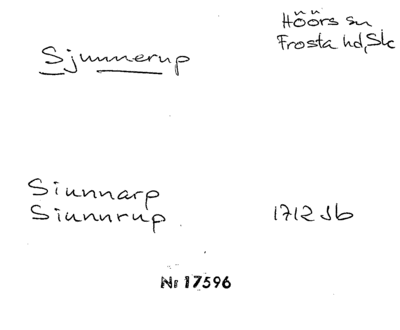 Höörs sn
Frosta hd, Sk
Sjunnerup
Siunnarp
Siunnrup 1712 Jb
Nr 17596